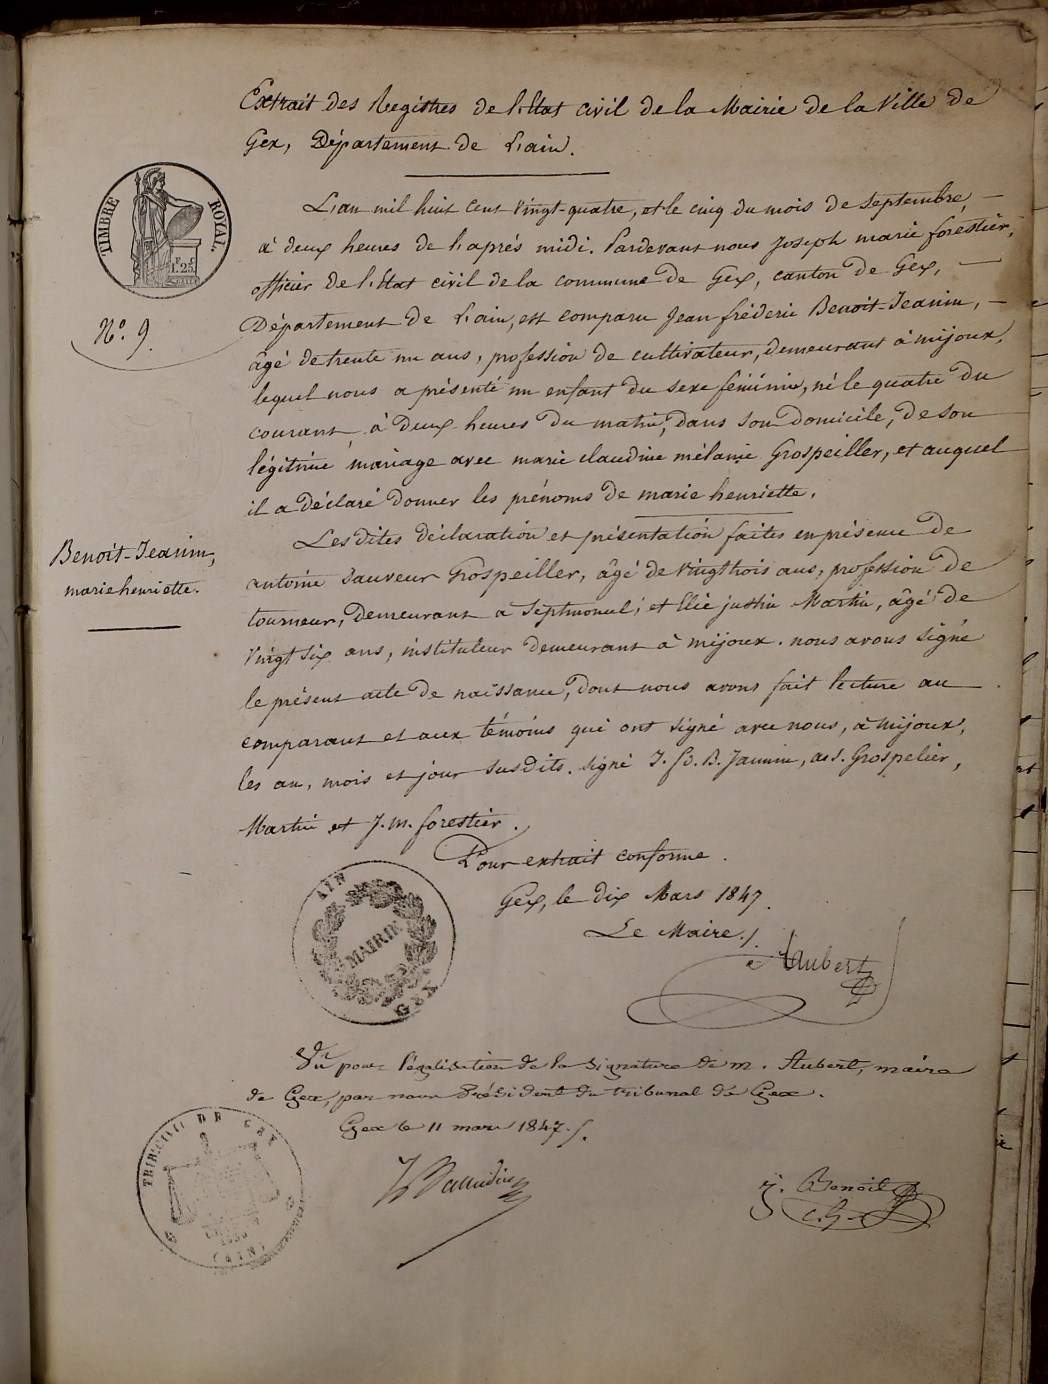 Extrait des Registres de l'Etat civil de la Mairie de la Ville de
Gex, Département de l'ain.
TIMBRE ROYAL
1.25
N.º 9.
L'an mil huit cent vingt-quatre, et le cinq du mois de septembre,
à deux heures de l'après midi. Pardevant nous Joseph marie forestier,
officier de l'Etat civil de la commune de Gex, canton de Gex,
Département de l'ain, est comparu Jean fréderic Benoit-Jeanin,
âgé de trente un ans, profession de cultivateur, demeurant à mijoux,
lequel nous a présenté un enfant du sexe féminin, né le quatre du
courant, à deux heures du matin, dans son domicile, de son
légitime mariage avec marie claudine mélanie Grospeiller, et auquel
il a déclaré donner les prénoms de marie henriette.
Benoit-Jeanin,
marie henriette.
Les dites déclaration et présentation faites en présence de
antoine Sauveur Grospeiller, âgé de vingt trois ans, profession de
tourneur, demeurant à Septmoncel; et Elie justin Martin, âgé de
vingt six ans, instituteur demeurant à mijoux. nous avons signé
le présent acte de naissance, dont nous avons fait lecture au
comparant et aux témoins qui ont signé avec nous, à mijoux,
les an, mois et jour susdits. signé J. f. B. Jannin, as. Grospelier,
Martin et J. m. forestier.
Pour extrait conforme.
Gex, le dix Mars 1847.
Le Maire
Aubert
AIN
MAIRIE
GEX
Vu pour légalisation de la signature de m. Aubert, maire
de Gex, par nous Président du tribunal de Gex.
Gex le 11 mars 1847.
TRIB. CIVIL DE GEX
(AIN)
J. Benoit
C. G.